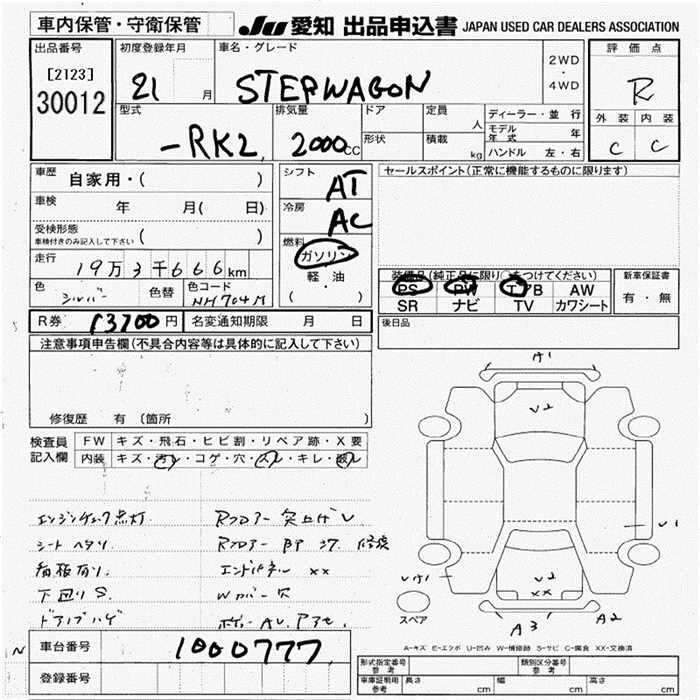 車内保管・守衛保管
JU 愛知 出品申込書 JAPAN USED CAR DEALERS ASSOCIATION
出品番号
[2123]
30012
初度登録年月
21 月
車名・グレード
STEPWAGON
2WD
・
4WD
評価点
R
外装 内装
C C
型式
-RK2
排気量
2000cc
ドア
形状
定員
人
積載
kg
ディーラー・並行
モデル年式 年
ハンドル 左・右
車歴 自家用・( )
車検 年 月( 日)
受検形態
車検付きのみ記入して下さい ( )
走行
19万3千666km
色 シルバー 色替 色コード NH704M
シフト AT
冷房 AC
燃料
ガソリン
軽・油
( )
セールスポイント(正常に機能するものに限ります)
装備品(純正品に限り○をつけてください)
PS PW エアB AW
SR ナビ TV カワシート
新車保証書
有・無
後日品
R券 13700円 名変通知期限 月 日
注意事項申告欄(不具合内容等は具体的に記入して下さい)
修復歴 有 (箇所 )
検査員記入欄
FW キズ・飛石・ヒビ割・リペア跡・X要
内装 キズ・汚レ・コゲ・穴・スレ・キレ・破ル
エンジンチェック点灯
シートヘタリ
看板有り
下廻りS
ドアノブハゲ
Rフロアー突上げU
Rフロアー
修復
エンドパネルXX
A1
U2
U1
UA1
U2
XX
A3
A2
スペア
A-キズ E-エクボ U-凹み W-補修跡 S-サビ C-腐食 XX-交換済
車台番号 1000777
N
登録番号
形式指定番号
参考
類別区分番号
参考
車庫証明用
参考
長さ cm 幅 cm 高さ cm